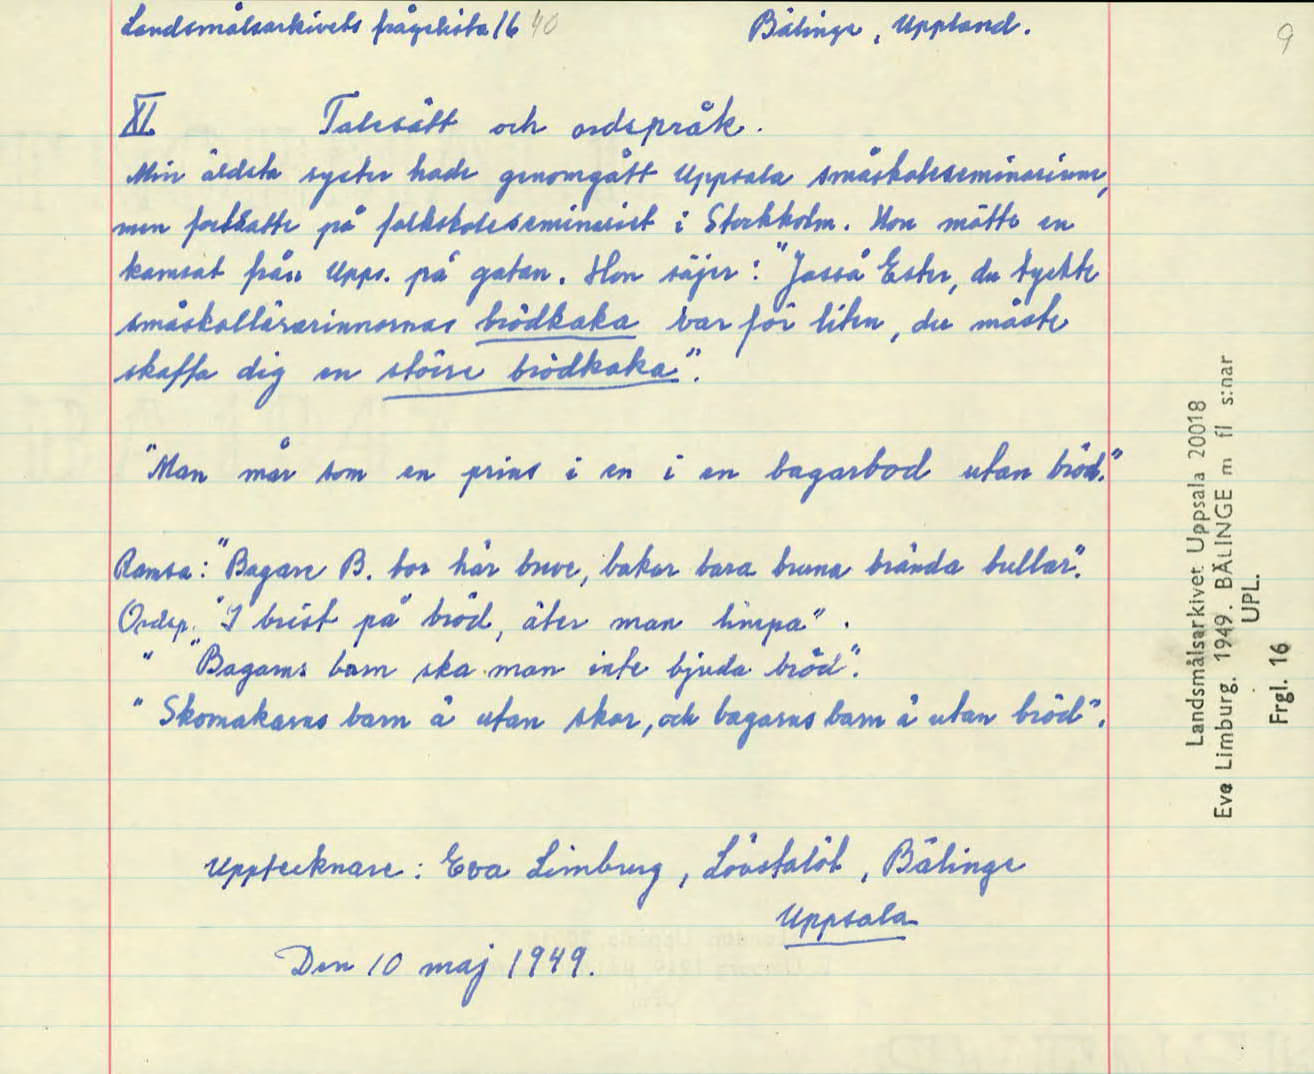 Landsmålsarkivets frågelista 16 40 Bälinge, Uppland. 9
XI. Talesätt och ordspråk.
Min äldsta syster hade genomgått Uppsala småskoleseminarium,
men fortsatte på folkskoleseminariet i Stockholm. Hon mötte en
kamrat från Upps. på gatan. Hon säjer: "Jasså Ester, du tyckte
småskollärarinnornas brödkaka var för liten, du måste
skaffa dig en större brödkaka".
"Man mår som en prins i en i en bagarbod utan bröd."
Ramsa: "Bagare B. bor här breve, bakar bara bruna brända bullar".
Ordsp. "I brist på bröd, äter man limpa".
" "Bagarns barn ska man inte bjuda bröd".
" Skomakarns barn ä utan skor, och bagarns barn ä utan bröd".
Upptecknare: Eva Limburg, Lövstalöt, Bälinge
Uppsala
Den 10 maj 1949.
Landsmålsarkivet Uppsala 20018
Eva Limburg. 1949. BÄLINGE m fl s:nar
UPL.
Frgl. 16